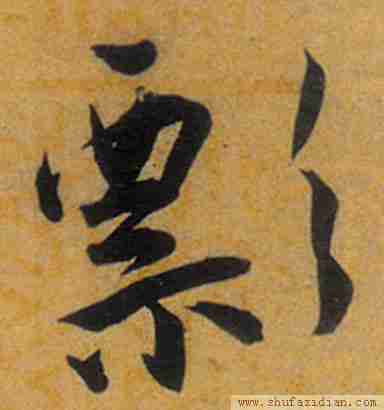 彯
www.shufazidian.com